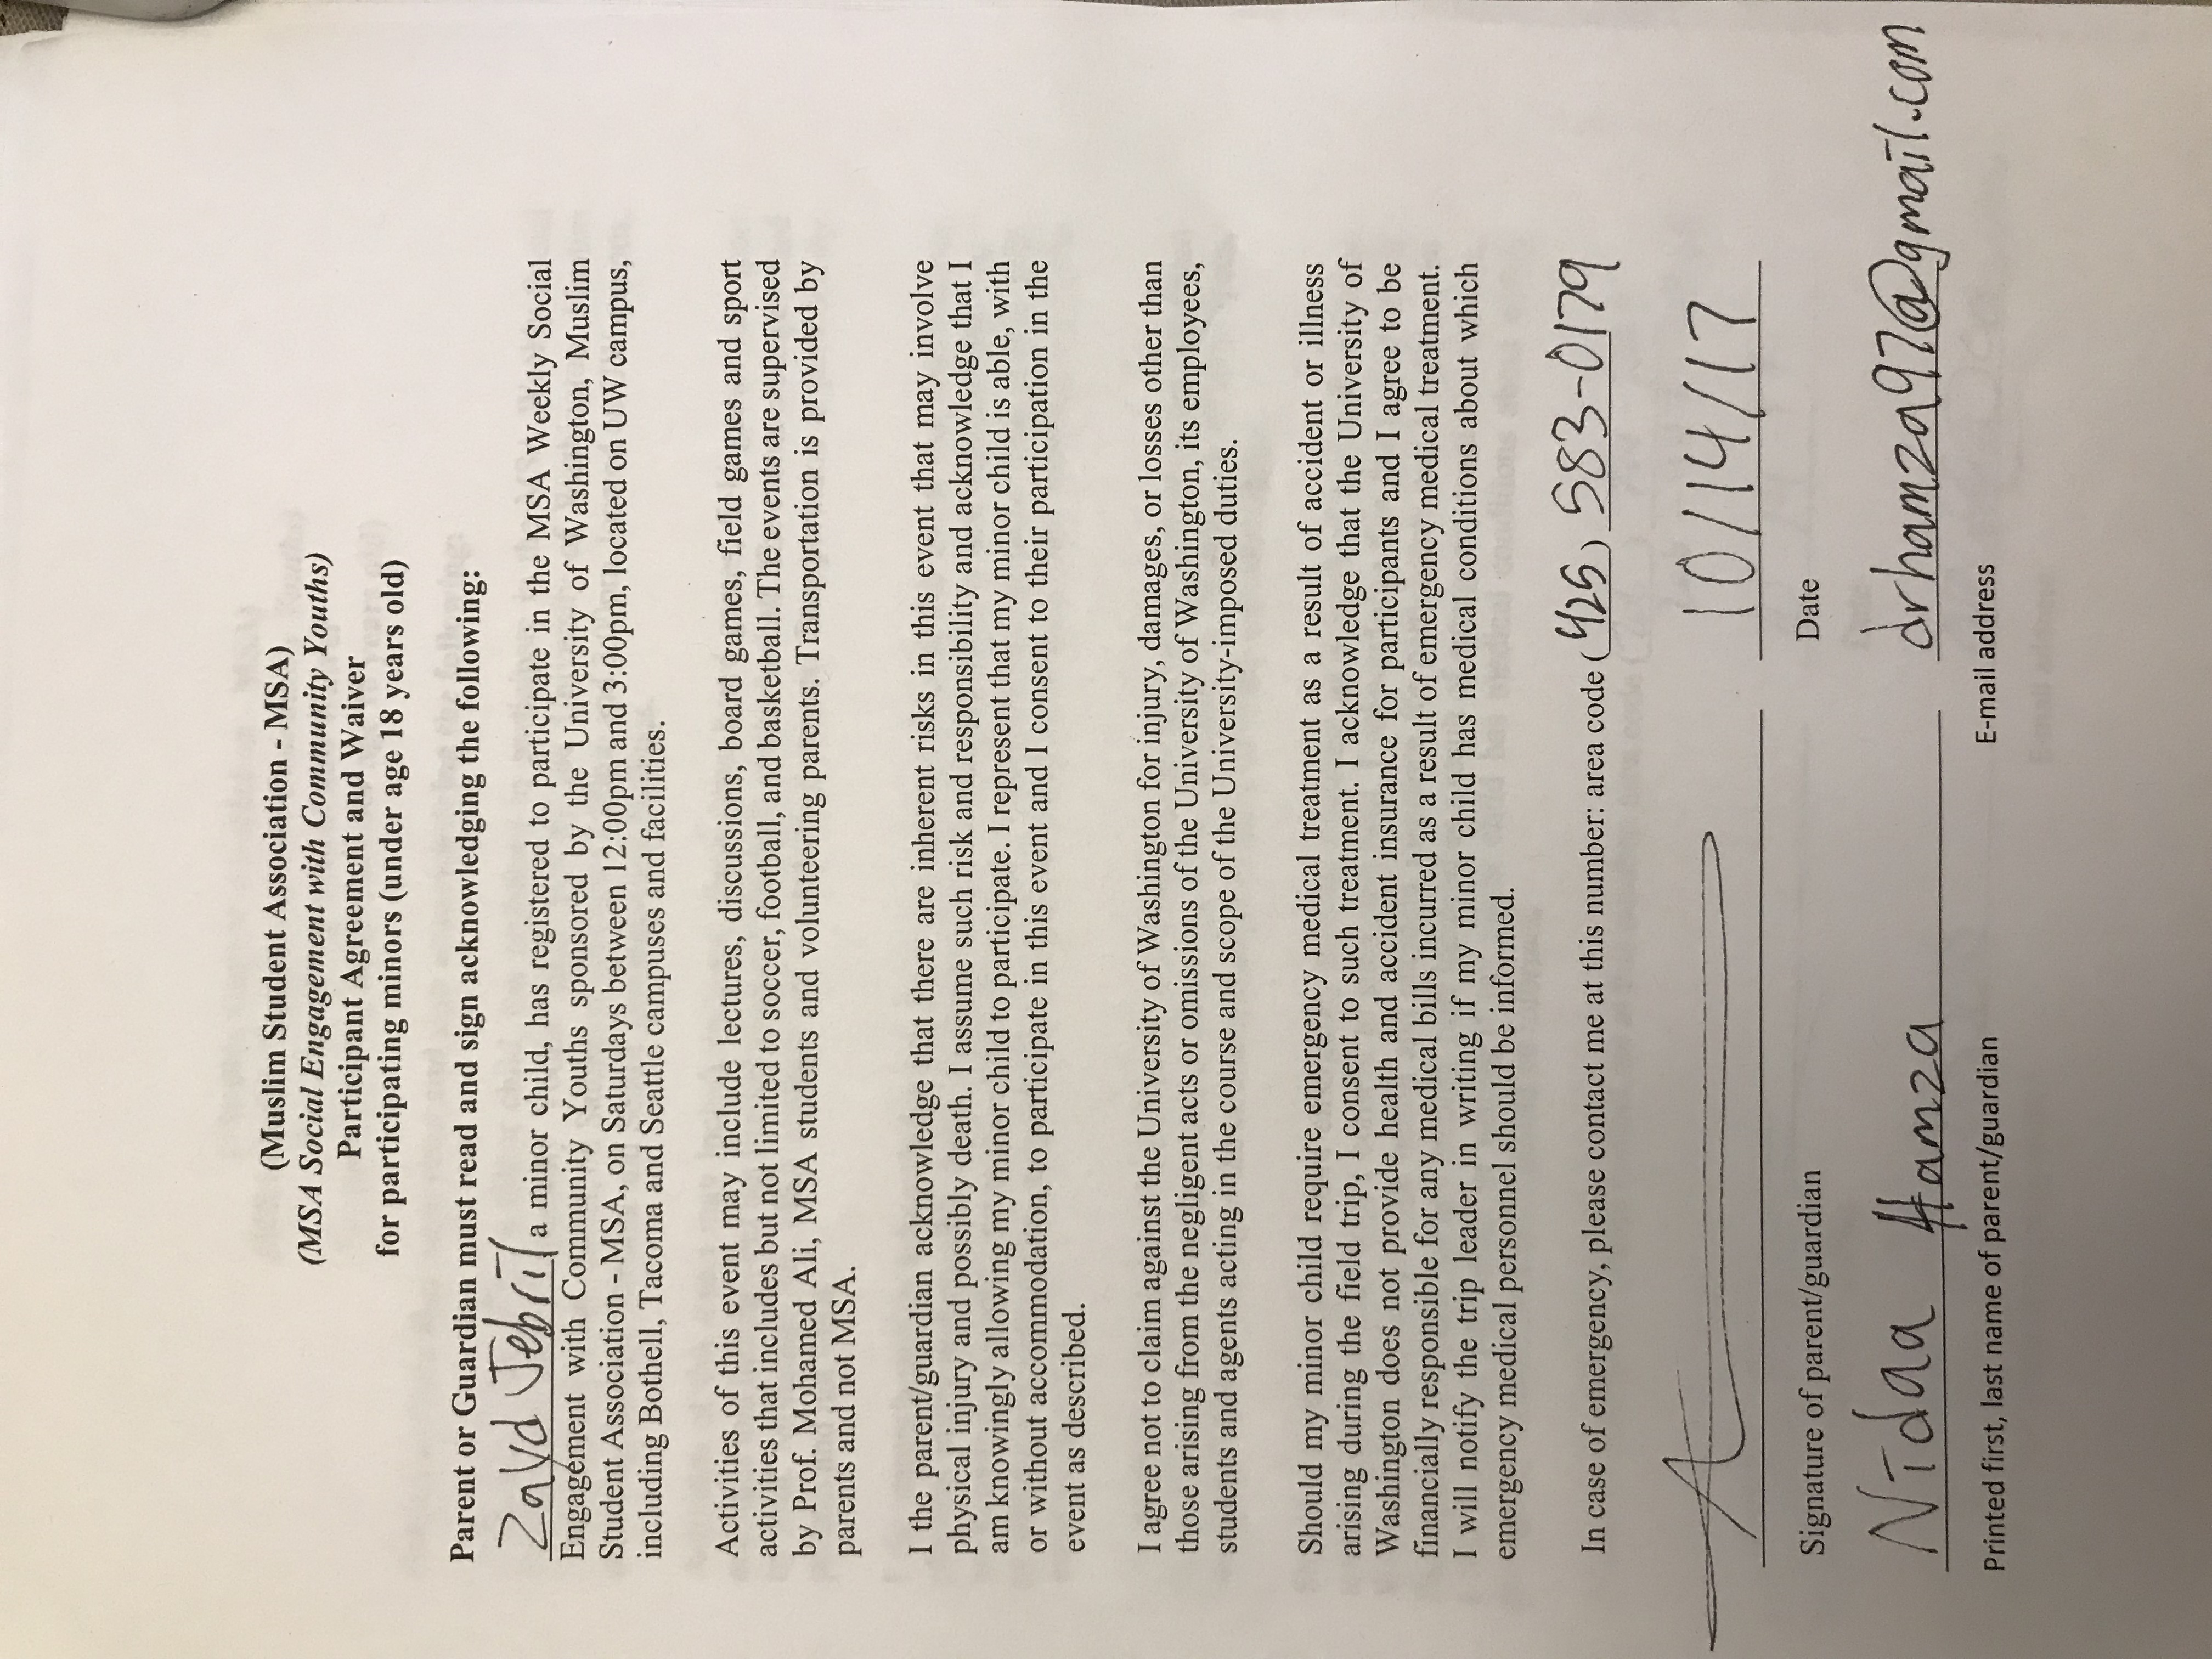 (Muslim Student Association - MSA)
(MSA Social Engagement with Community Youths)
Participant Agreement and Waiver
for participating minors (under age 18 years old)
Parent or Guardian must read and sign acknowledging the following:
Zayd Jebril a minor child, has registered to participate in the MSA Weekly Social
Engagement with Community Youths sponsored by the University of Washington, Muslim
Student Association - MSA, on Saturdays between 12:00pm and 3:00pm, located on UW campus,
including Bothell, Tacoma and Seattle campuses and facilities.
Activities of this event may include lectures, discussions, board games, field games and sport
activities that includes but not limited to soccer, football, and basketball. The events are supervised
by Prof. Mohamed Ali, MSA students and volunteering parents. Transportation is provided by
parents and not MSA.
I the parent/guardian acknowledge that there are inherent risks in this event that may involve
physical injury and possibly death. I assume such risk and responsibility and acknowledge that I
am knowingly allowing my minor child to participate. I represent that my minor child is able, with
or without accommodation, to participate in this event and I consent to their participation in the
event as described.
I agree not to claim against the University of Washington for injury, damages, or losses other than
those arising from the negligent acts or omissions of the University of Washington, its employees,
students and agents acting in the course and scope of the University-imposed duties.
Should my minor child require emergency medical treatment as a result of accident or illness
arising during the field trip, I consent to such treatment. I acknowledge that the University of
Washington does not provide health and accident insurance for participants and I agree to be
financially responsible for any medical bills incurred as a result of emergency medical treatment.
I will notify the trip leader in writing if my minor child has medical conditions about which
emergency medical personnel should be informed.
In case of emergency, please contact me at this number: area code (425) 583-0179
10/14/17
Signature of parent/guardian Date
Nidaa Hamza drhamza97@gmail.com
Printed first, last name of parent/guardian E-mail address